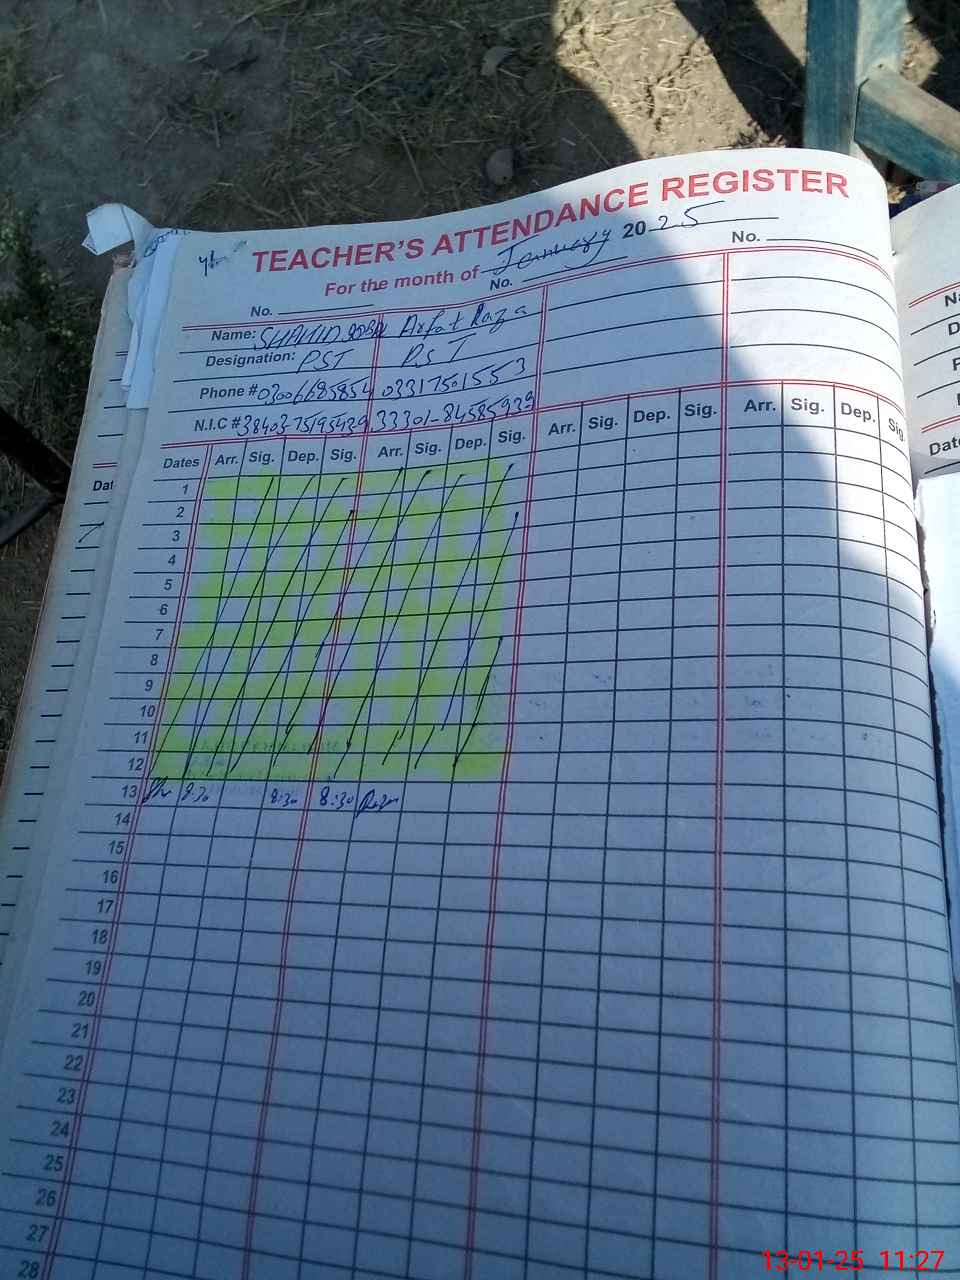 TEACHER'S ATTENDANCE REGISTER
For the month of January 2025
No. No. No.
Name: SHAHID Arfat Raza
Designation: PST PST
Phone # 03006685854 03317501553
N.I.C # 38403-75195439 33301-84585939
Dates Arr. Sig. Dep. Sig. Arr. Sig. Dep. Sig. Arr. Sig. Dep. Sig. Arr. Sig. Dep. Sig.
1
2
3
4
5
6
7
8
9
10
11
12
13 8:30 8:30 8:30
14
15
16
17
18
19
20
21
22
23
24
25
26
27
28
Dat
Na
D
P
Date
13-01-25 11:27